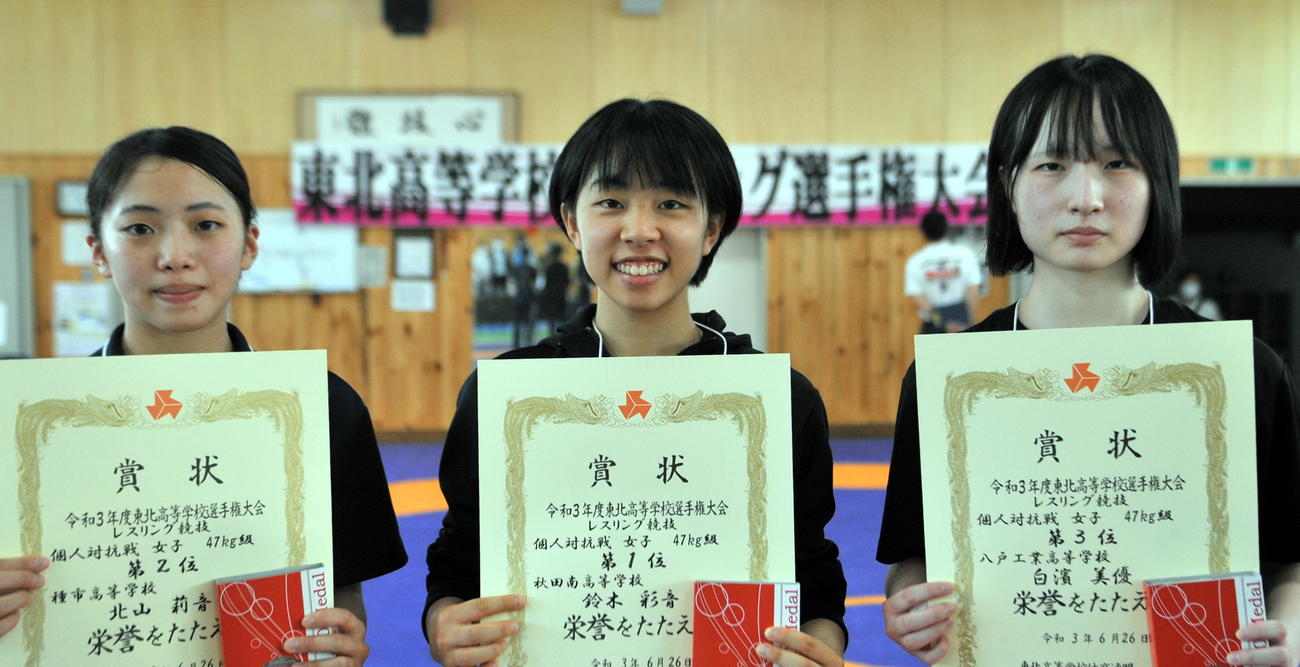 心技體
東北高等学校
グ選手権大会
賞状
令和3年度東北高等学校選手権大会
レスリング競技
個人対抗戦 女子 47kg級
第2位
種市高等学校
北山 莉音
栄誉をたたえ
6月26日
Medal
賞状
令和3年度東北高等学校選手権大会
レスリング競技
個人対抗戦 女子 47kg級
第1位
秋田南高等学校
鈴木 彩音
栄誉をたたえ
令和 3年 6月26日
Medal
賞状
令和3年度東北高等学校選手権大会
レスリング競技
個人対抗戦 女子 47kg級
第3位
八戸工業高等学校
白濱 美優
栄誉をたたえ
令和 3年 6月26日
東北高等学校体育連盟
Medal